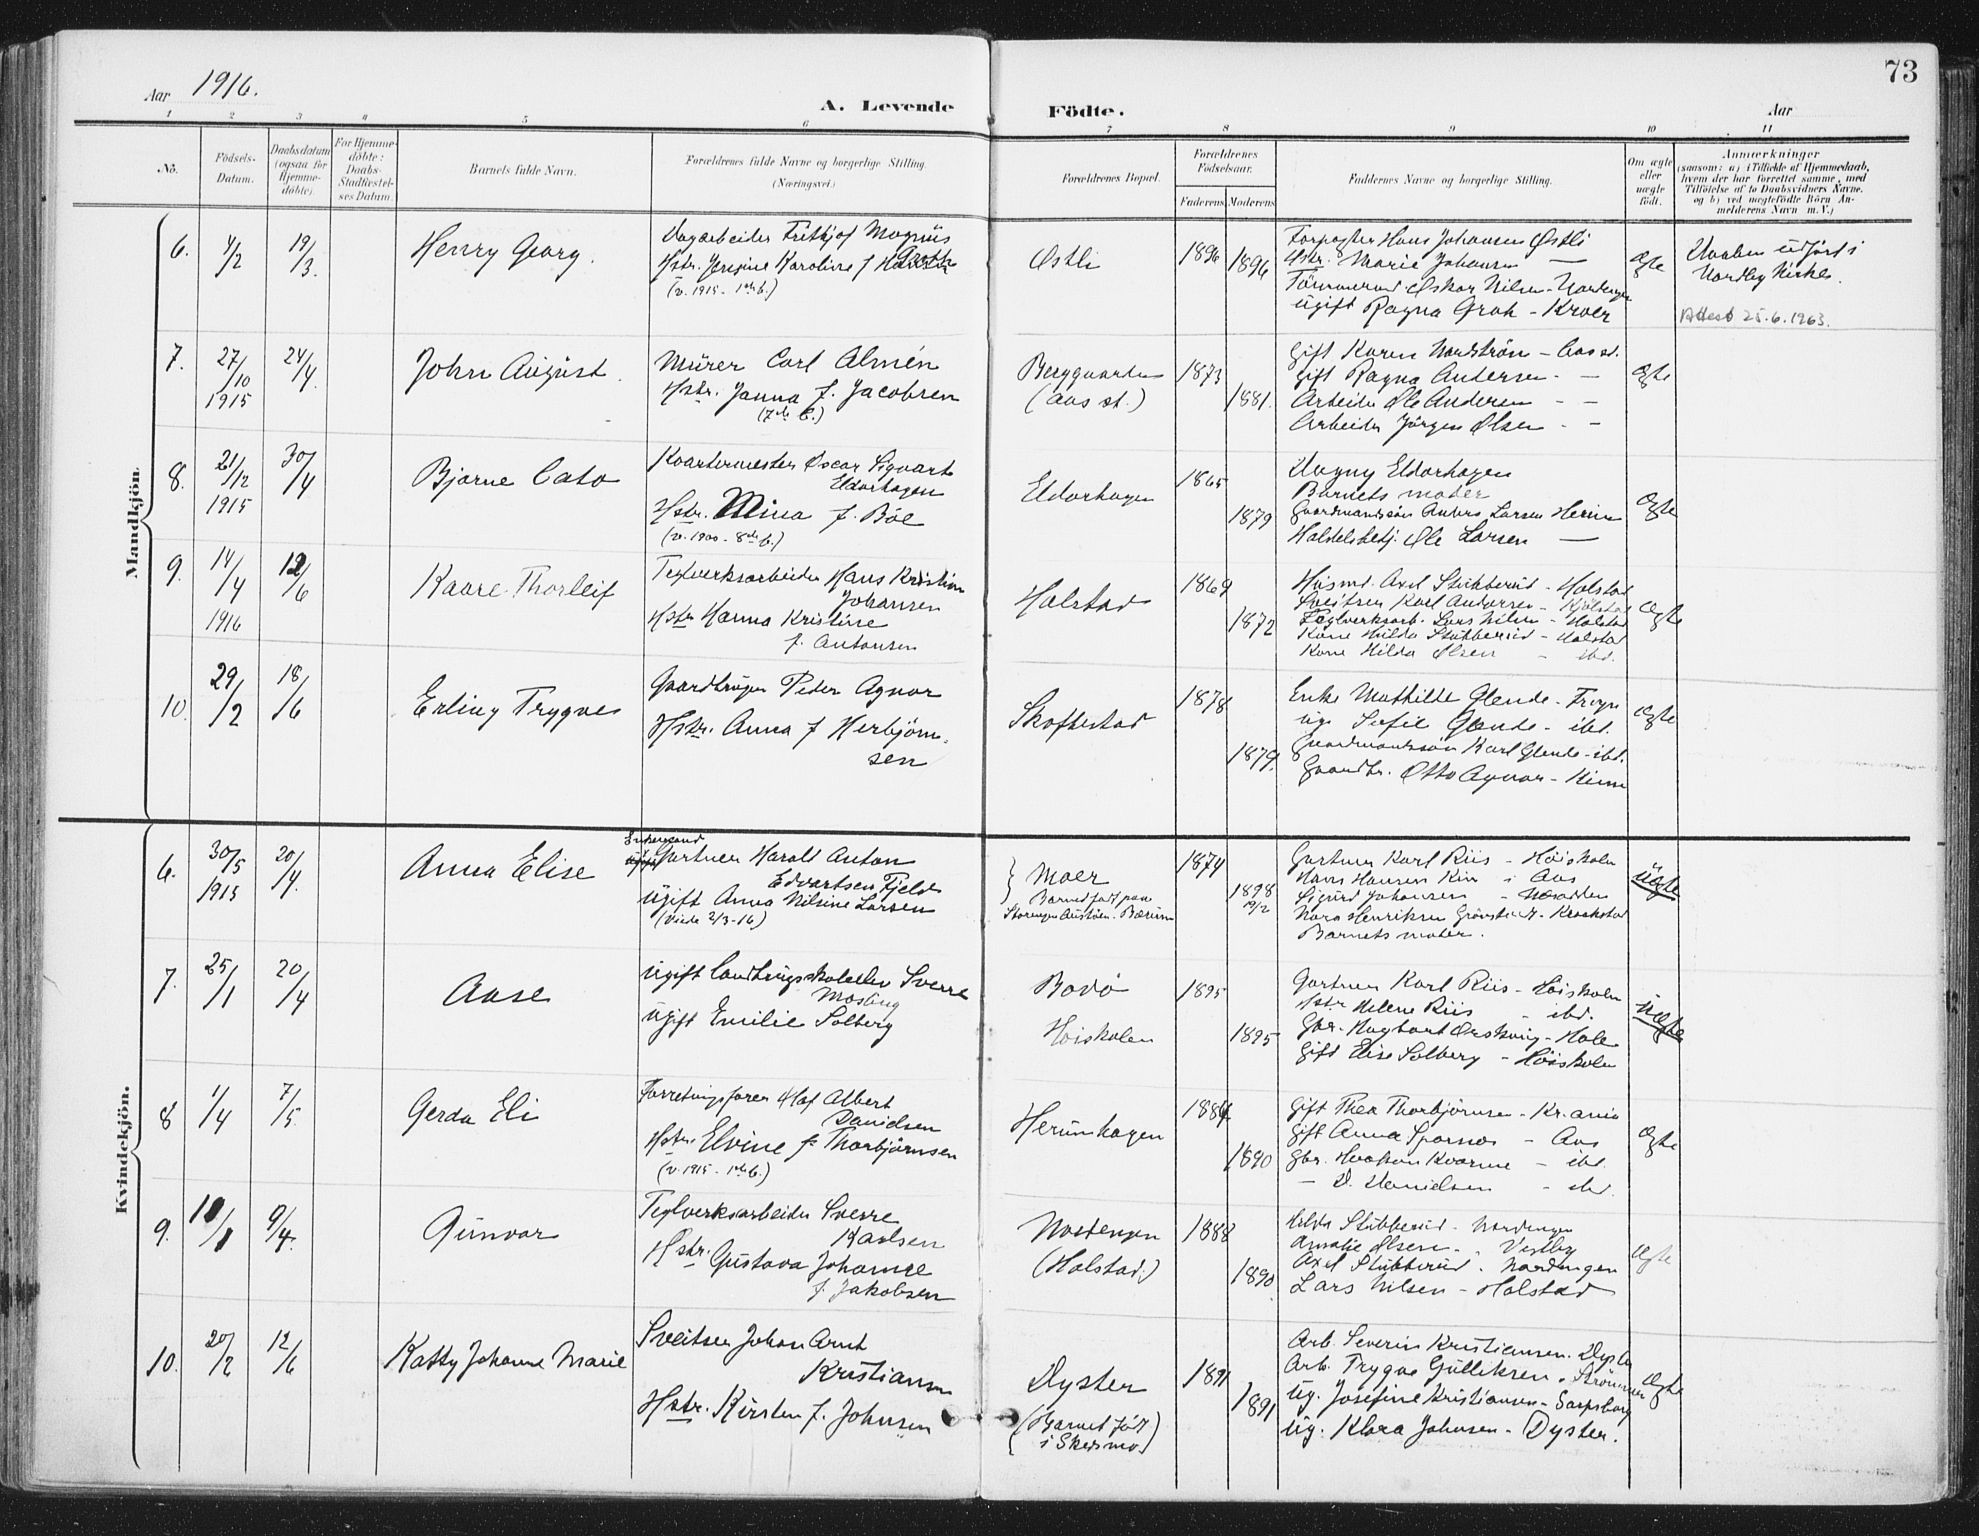 73
Aar 1916.
A. Levende Födte.
Aar
1 2 3 4 5 6 7 8 9 10 11
No.
Födsels-Datum.
Daabsdatum (ogsaa for Hjemmedöbte).
For Hjemmedöbte: Daabs-Stadfæstelses Datum.
Barnets fulde Navn.
Forældrenes fulde Navne og borgerlige Stilling. (Næringsvei.)
Forældrenes Bopæl.
Forældrenes Födselsaar.
Faderens Moderens
Faddernes Navne og borgerlige Stilling.
Om ægte eller uægte födt.
Anmærkninger
(saasom: a) i Tilfælde af Hjemmedaab, hvem der har forrettet samme, med Tilföielse af to Daabsvidners Navne. og b) ved uægtefödte Börn Anmelderens Navn m. V.)
Mandkjön.
6. 4/2 19/3 Henry Georg.
Fritjof Magnus
Hstr. Karoline f.
(v. 1915 - 1ste b.)
Østli 1896 1896
Hans Johansen Østli
Hstr. Marie Johansen —
Oskar Nilsen -
ugift Ragna Groh - Kroer
Ægte
Daaben udført i
Nordby Kirke.
Attest 25.6.1963.
7. 27/10 1915 24/4 John August
Murer Carl Almén
Hstr. Janna f. Jacobsen
(7de b.)
(Aas st.)
1873 1881.
Gift Karen Nordstrøm - Aas st.
Gift Ragna Andersen - —
Arbeider Ole Andersen - -
Arbeider Jørgen Olsen - -
Ægte
8. 21/12 1915 30/4 Bjarne Cato
Kvartermester Oscar Sigvart
Eldorhagen
Hstr. Mina f. Böe
(v. 1900 - 8de b.)
Eldorhagen 1865 1879
Dagny Eldorhagen
Barnets moder
Gaardmandssøn Anders Larsen
Ole Larsen —
Ægte
9. 14/4 1916 12/6 Kaare Thorleif
Teglverksarbeider Hans Kristian
Johansen
Hstr Hanna Kristine
f. Antonsen
Holstad 1869 1872
Husmd. Axel Stubberud - Holstad
Sveitser Karl Andersen -
Teglverksarb. Lars Nilsen - Holstad
Kone Hilda Stubberud - Holstad
Kone Hilda Olsen - ibd.
Ægte
10. 29/2 18/6 Erling Trygve
Gaardbruger Peder Agnor
Hstr. Anna f Herbjørn-
sen
Skoftestad 1878 1879.
Enke Mathilde Glende - Frogn
ug. Sofie Glende - ibd.
Gaardmandssøn Karl Glende - ibd.
Gaardbr. Otto Agnor -
Ægte
Kvindekjön.
6. 30/5 1915 20/4 Anna Elise
Gartner Harald Anton
Edvartsen Fjeld
Ugift Anna Nilsine Larsen
(Viede 2/3-16)
Moer
Barnet født paa
Bærum
1874 1898 19/2
Gartner Karl Riis - Høiskolen
Hans Hansen i Aas
Sigurd Johansen -
Nora Henriksen
Barnets moder.
Uægte
7. 25/1 20/4 Aase
Ugift landbrugsskoleelev Sverre
Mosling
Ugift Emilie Solberg
Bodø 1895
Høiskolen 1895
Gartner Karl Riis - Høiskolen
Hstr Helene Riis - ibd.
Gbr.
Gift Elise Solberg - Høiskolen
Uægte
8 1/4 7/5 Gerda Eli
Forretningsfører Olaf Albert
Danielsen
Hstr. Elvine f. Thorbjørnsen
(v. 1915 - 1ste b.)
Herumhagen 1884 1890
Gift Thea Thorbjørnsen - Kr.ania
Gift Anna Sparnes - Aas
Gbr. Haakon Kvarme - ibd.
— D. Danielsen - ibd.
Ægte
9. 9/4. Gunvor
Teglverksarbeider Sverre
Karlsen
Hstr. Gustava Johanne
f. Jakobsen
(Holstad.)
1888 1890
Hilda Stubberud -
Amalie Olsen - Vestby
Axel Stubberud -
Lars Nilsen - Holstad
Ægte
10. 20/2 12/6 Katty Johanne Marie
Sveitser Johan Arnt
Kristiansen
Hstr. Kirsten f. Johnsen
Dyster
(Barnet født
i Skedsmo)
1891 1891
Arb. Severin Kristiansen. Dyster
Arb. Trygve Gulliksen. Strømmen
Ug. Josefine Kristiansen - Sarpsborg
Ug. Klara Johnsen - Dyster.
Ægte